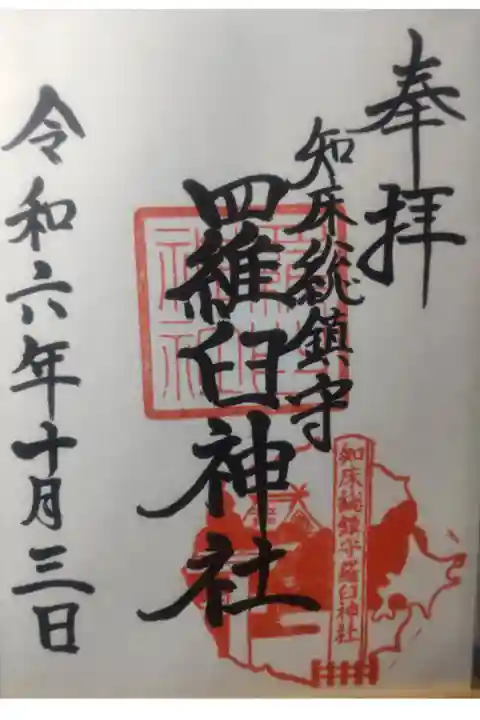 奉拝
知床総鎮守
羅臼神社
令和六年十月三日
知床総鎮守羅臼神社